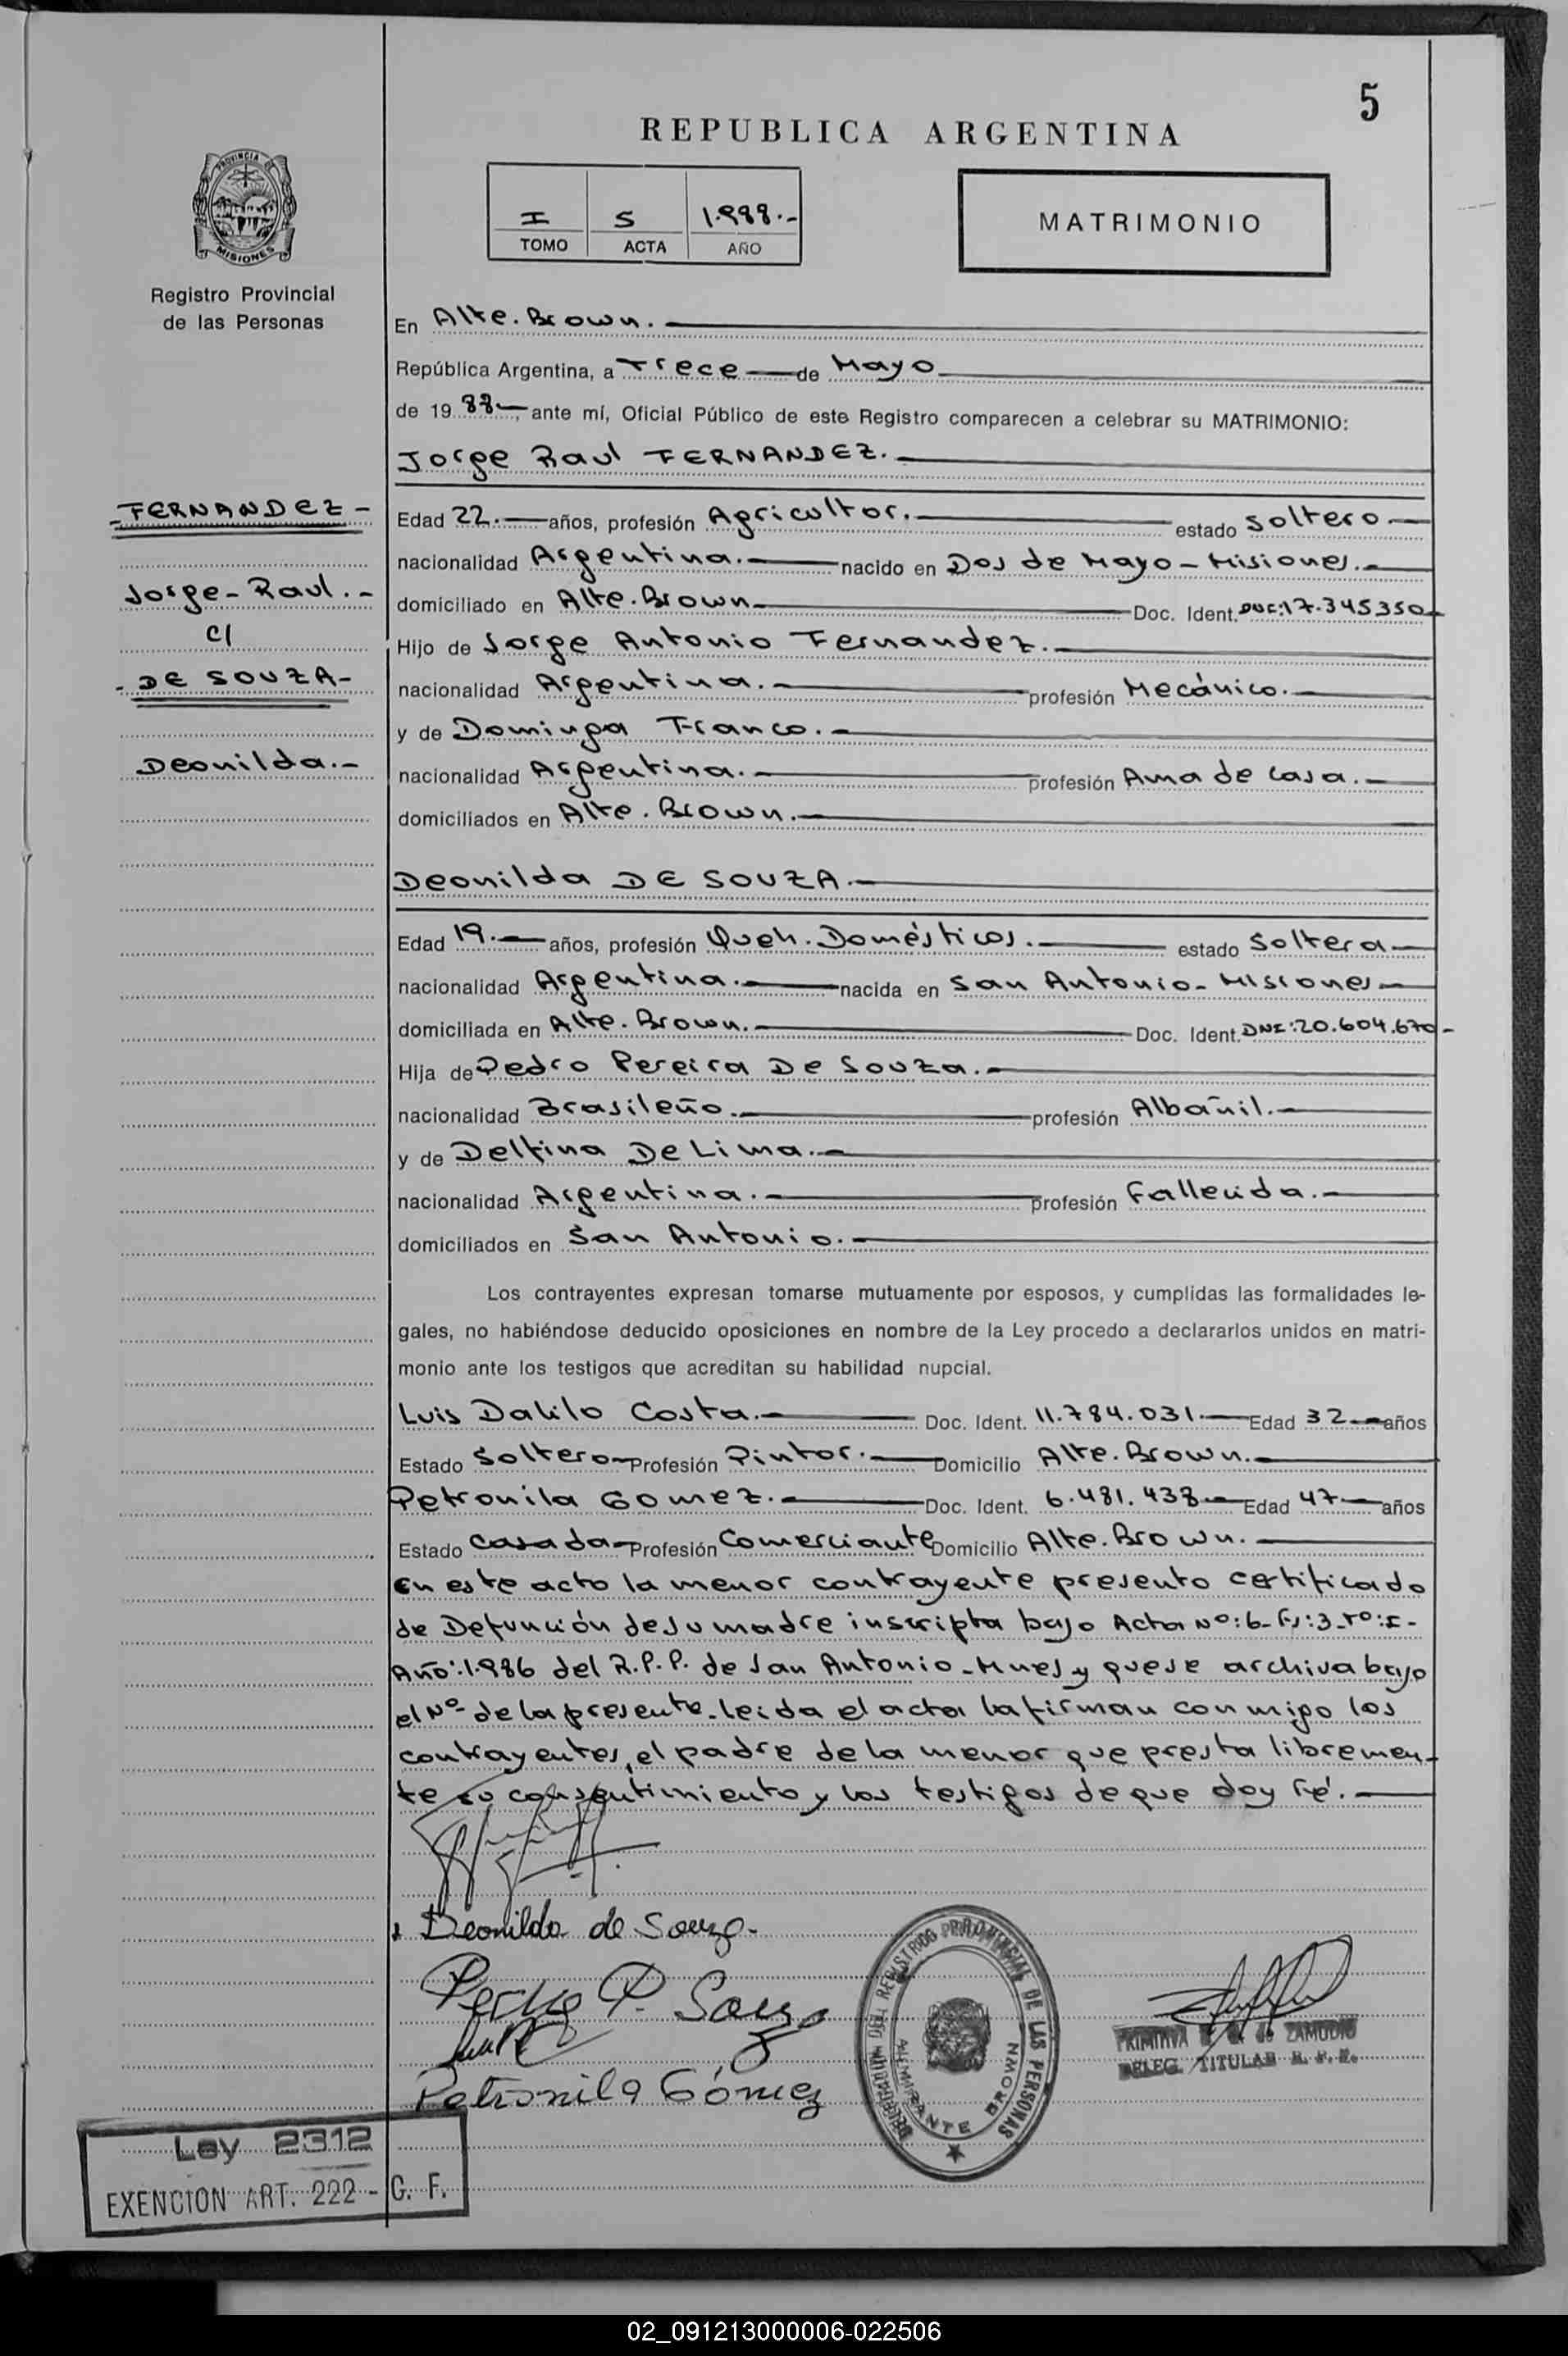 5
REPUBLICA ARGENTINA
I S 1.988.-
TOMO ACTA AÑO
MATRIMONIO
PROVINCIA DE
MISIONES
Registro Provincial
de las Personas
En Alte. Brown.
República Argentina, a Trece de Mayo
de 19 88, ante mí, Oficial Público de este Registro comparecen a celebrar su MATRIMONIO:
Jorge Raul FERNANDEZ.
FERNANDEZ-
Jorge-Raul.-
c/
-DE SOUZA-
Deonilda.-
Edad 22.- años, profesión Agricultor. estado Soltero
nacionalidad Argentina. nacido en Dos de Mayo - Misiones.
domiciliado en Alte. Brown Doc. Ident. DNI:17.345350
Hijo de Jorge Antonio Fernandez.
nacionalidad Argentina. profesión Mecánico.
y de Dominga Franco.
nacionalidad Argentina. profesión Ama de casa.
domiciliados en Alte. Brown.
Deonilda DE SOUZA.
Edad 19.- años, profesión Queh. Domésticos. estado Soltera
nacionalidad Argentina. nacida en San Antonio - Misiones
domiciliada en Alte. Brown. Doc. Ident. DNI:20.604.670-
Hija de Pedro Pereira De Souza.
nacionalidad Brasileño. profesión Albañil.
y de Delfina De Lima.
nacionalidad Argentina. profesión Fallecida.
domiciliados en San Antonio.
Los contrayentes expresan tomarse mutuamente por esposos, y cumplidas las formalidades le-
gales, no habiéndose deducido oposiciones en nombre de la Ley procedo a declararlos unidos en matri-
monio ante los testigos que acreditan su habilidad nupcial.
Luis Dalilo Costa. Doc. Ident. 11.784.031. Edad 32 años
Estado Soltero Profesión Pintor. Domicilio Alte. Brown.
Petronila Gomez. Doc. Ident. 6.481.438 Edad 47 años
Estado Casada Profesión Comerciante Domicilio Alte. Brown.
En este acto la menor contrayente presento certificado
de Defunción de su madre inscripta bajo Acta Nº:6-Fº:3-Tº:I-
Año:1.986 del R.P.P. de San Antonio-Mnes y que se archiva bajo
el Nº de la presente. leida el acta la firman conmigo los
contrayentes, el padre de la menor que presta libremen-
te su consentimiento y los testigos de que doy fé.
Deonilda de Souza-
Pedro P. Souza
Petronila Gómez
DELEGACION DEL REGISTRO PROVINCIAL DE LAS PERSONAS
ALMIRANTE BROWN
PRIMITIVA de ZAMUDIO
DELEG. TITULAR R. P. P.
Ley 2312
EXENCION ART. 222 - C. F.
02_091213000006-022506